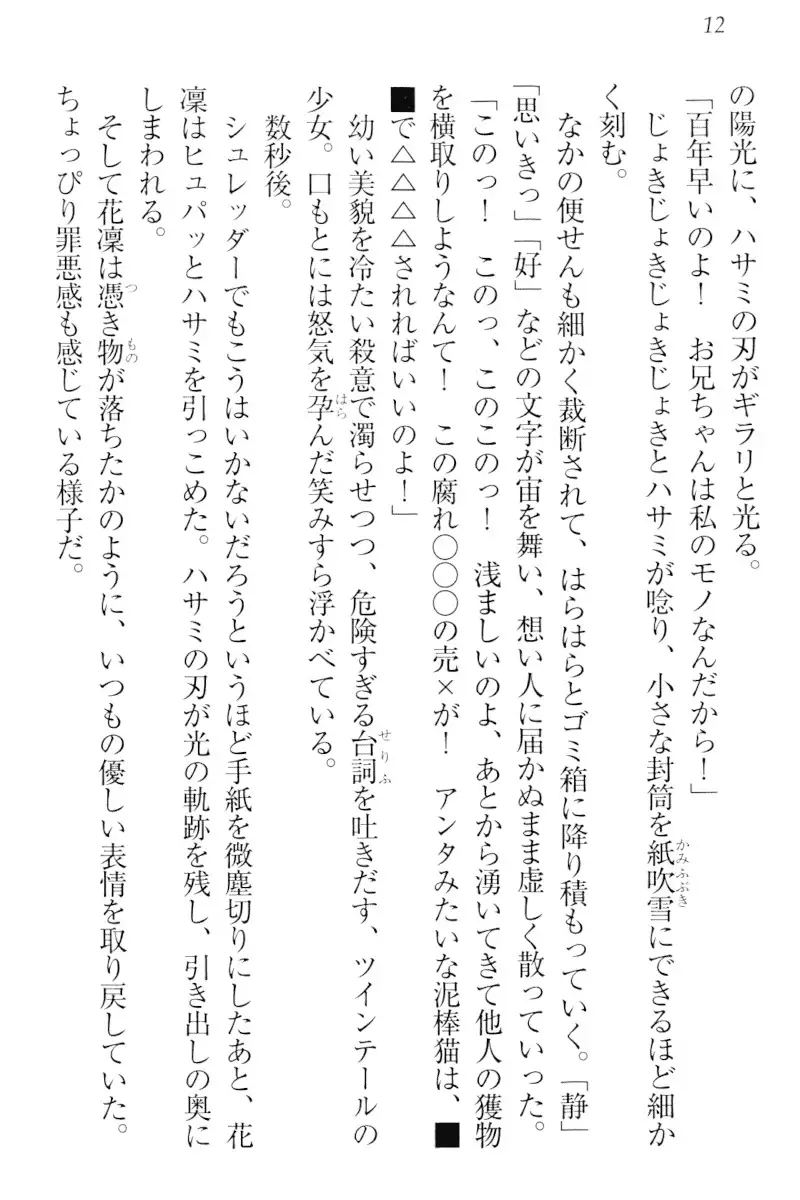 12
の陽光に、ハサミの刃がギラリと光る。
「百年早いのよ！　お兄ちゃんは私のモノなんだから！」
じょきじょきじょきじょきとハサミが唸り、小さな封筒を紙吹雪にできるほど細か
く刻む。
なかの便せんも細かく裁断されて、はらはらとゴミ箱に降り積もっていく。「静」
「思いきっ」「好」などの文字が宙を舞い、想い人に届かぬまま虚しく散っていった。
「このっ！　このっ、このこのっ！　浅ましいのよ、あとから湧いてきて他人の獲物
を横取りしようなんて！　この腐れ○○○の売×が！　アンタみたいな泥棒猫は、■
■で△△△△されればいいのよ！」
幼い美貌を冷たい殺意で濁らせつつ、危険すぎる台詞を吐きだす、ツインテールの
少女。口もとには怒気を孕んだ笑みすら浮かべている。
数秒後。
シュレッダーでもこうはいかないだろうというほど手紙を微塵切りにしたあと、花
凜はヒュパッとハサミを引っこめた。ハサミの刃が光の軌跡を残し、引き出しの奥に
しまわれる。
そして花凜は憑き物が落ちたかのように、いつもの優しい表情を取り戻していた。
ちょっぴり罪悪感も感じている様子だ。